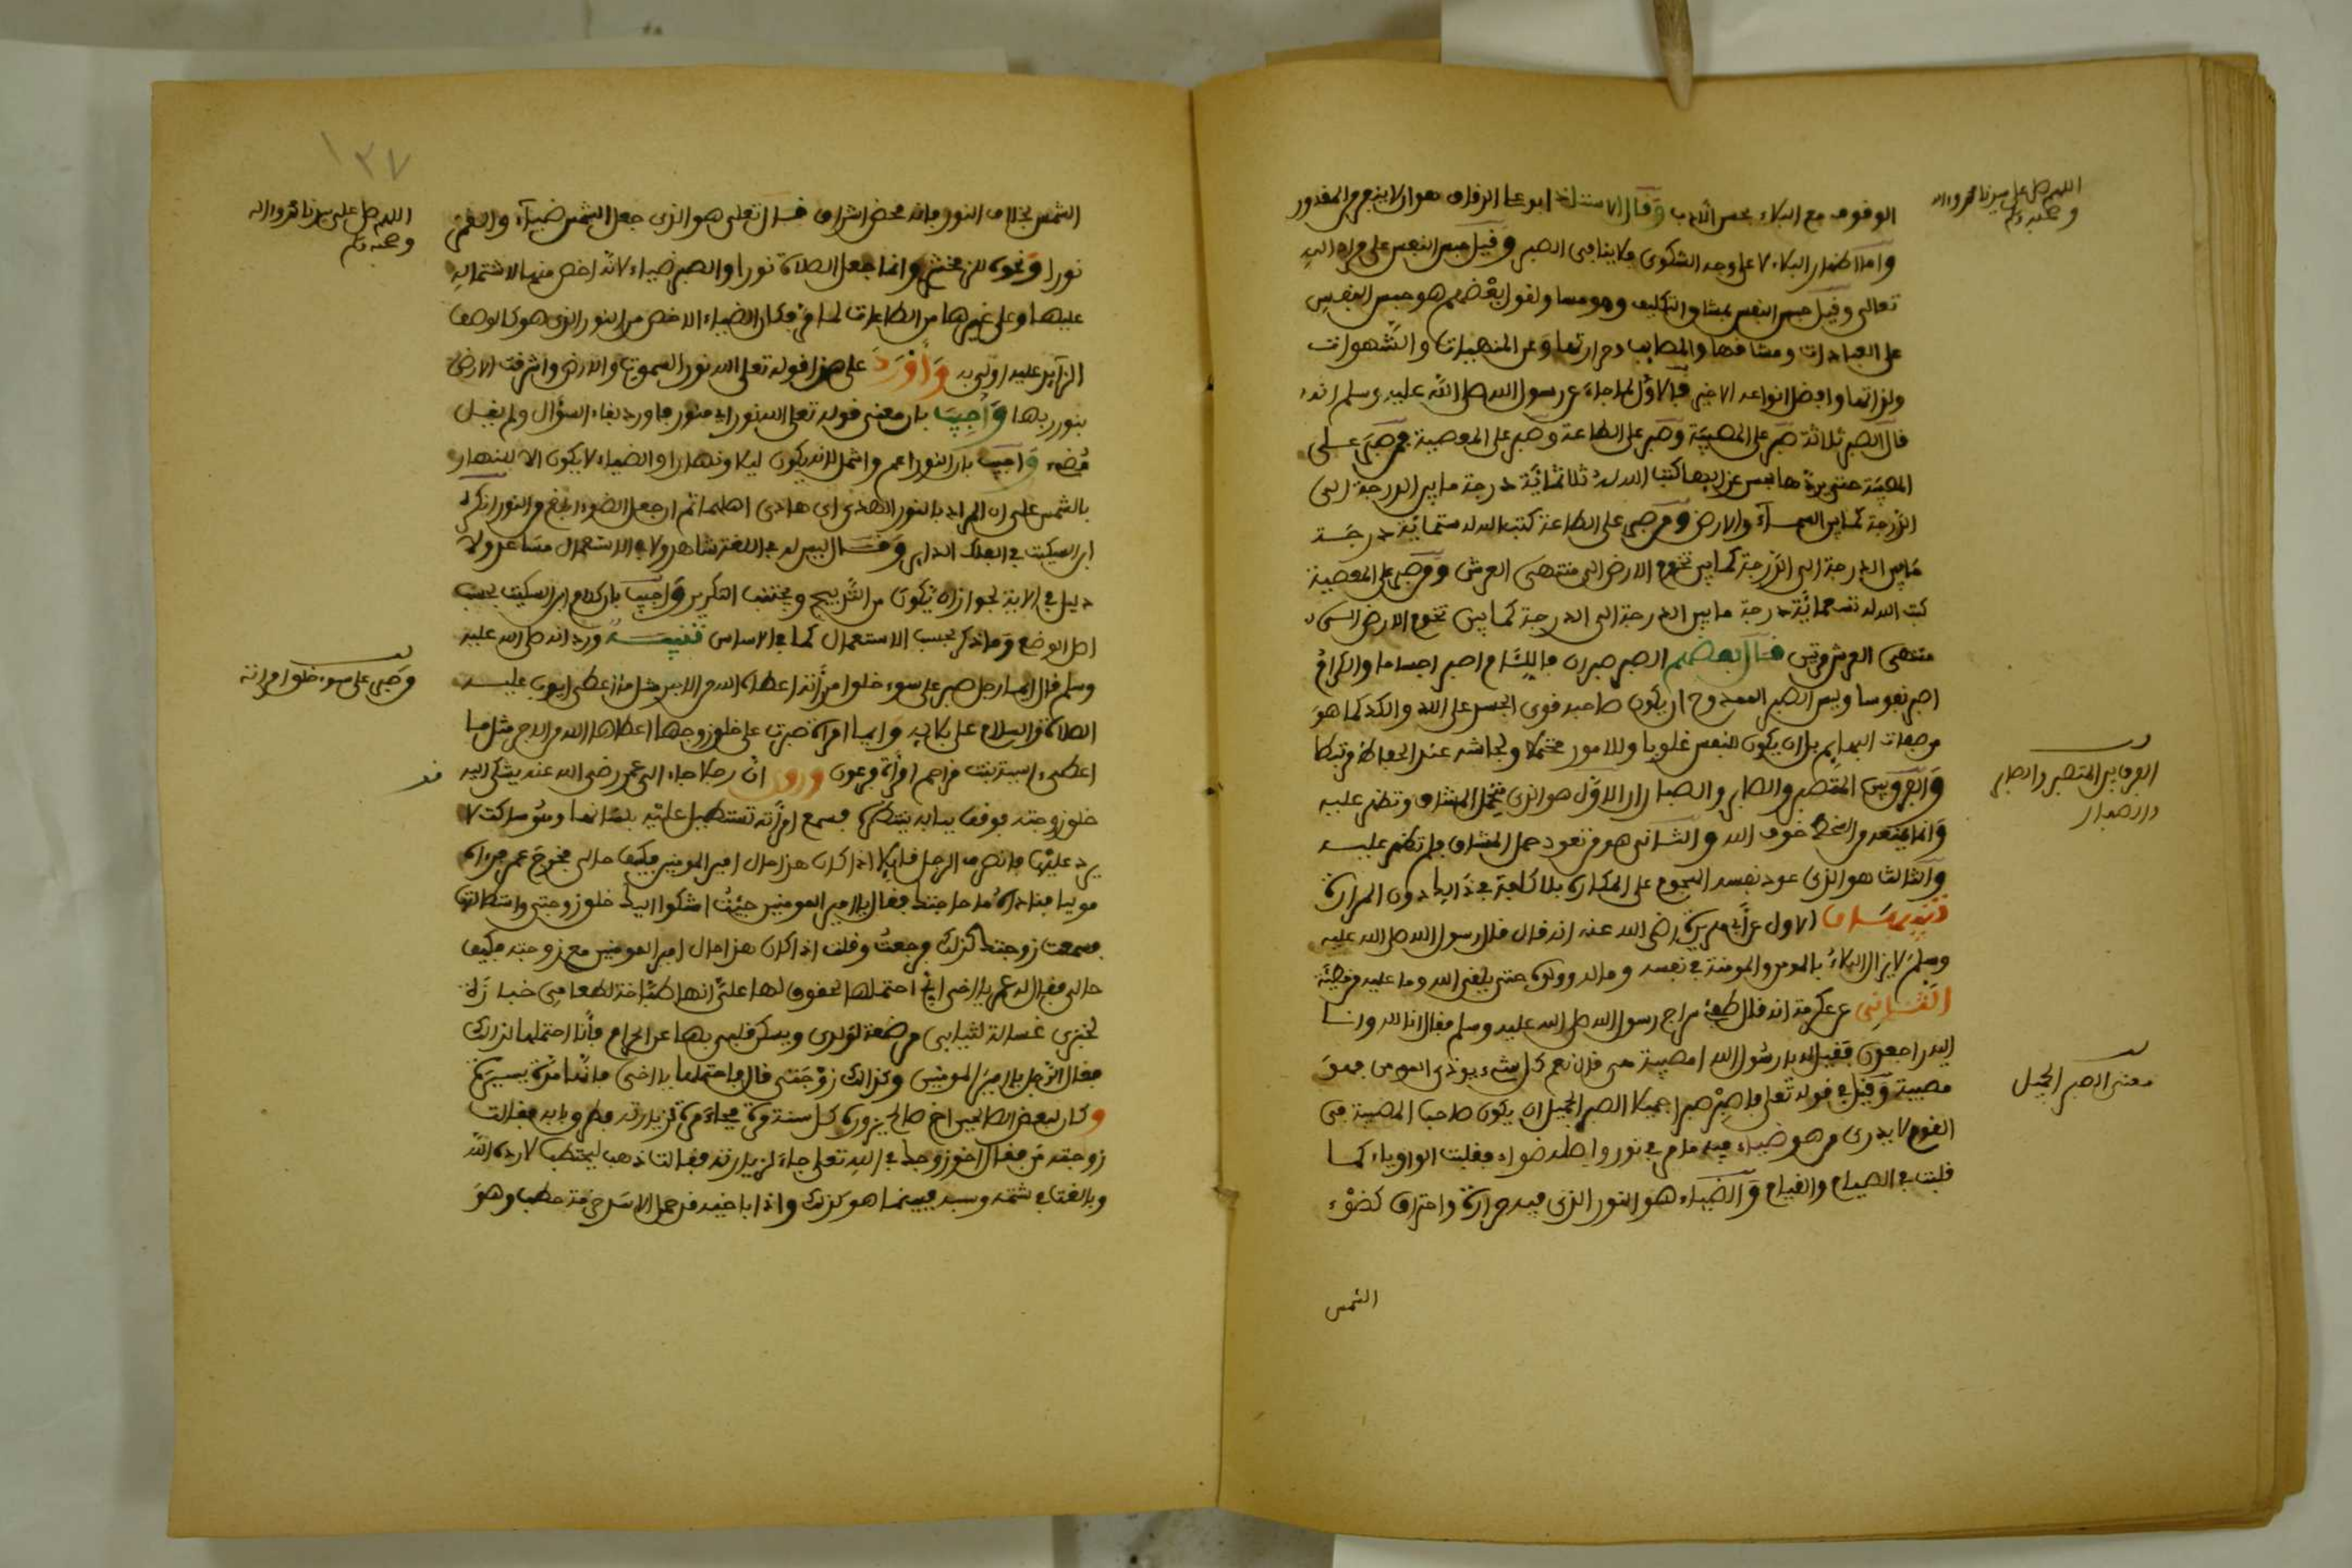 اللهم صل على سيدنا محمد وءاله
وصحبه وسلم
الوقوف مع البلاء بحسن الأدب وقال الاستاذ ابو علي الدقاق هو ان لا يعترض المقدور
واما اظهار البلاء لا على وجه الشكوى فلا ينافي الصبر وقيل حبس النفس على مراد الله
تعالى وقيل حبس النفس بمشاق التكليف وهو مساو لقول بعضهم هو حبس النفس
على العبادات ومشاقها والمصايب وحرارتها وعن المنهيات والشهوات
ولذاتها وافضل انواعه الاخير فالاول لما جاء عن رسول الله صلى الله عليه وسلم انه
قال الصبر ثلاثة صبر على المصيبة وصبر على الطاعة وصبر على المعصية فمن صبر على
المصيبة حتى يردها بحسن عزايها كتب الله له ثلاثمائة درجة ما بين الدرجة الى
الدرجة كما بين السماء والارض ومن صبر على الطاعة كتب الله له ستمائة درجة
ما بين الدرجة الى الدرجة كما بين تخوم الارض الى منتهى العرش ومن صبر على المعصية
كتب الله له تسعمائة درجة ما بين الدرجة الى الدرجة كما بين تخوم الارض الى
منتهى العرش مرتين قال بعضهم الصبر صبران فالليام اصبر اجساما والكرام
اصبر نفوسا وليس الصبر الممدوح ان يكون صاحبه قوي الجسم على الكد كما هو
من صفات البهايم بل ان يكون للنفس غلوبا وللامور محتملا ولجاشه عند الحفاظ مرتبطا
والفرق بين المتصبر والصابر والصبار ان الاول هو الذي يتحمل المشاق وتظهر عليه
وانما يمنعه من السخط خوف الله والثاني هو من تعود حمل المشاق فلم تظهر عليه
والثالث هو الذي عود نفسه الهجوم على المكاره بلا كلفة في ذالك دون المرارة
الفرق بين المتصبر والصابر
والصبار
تنبيهات الاول عن ابي هريرة رضي الله عنه انه قال قال رسول الله صلى الله عليه
وسلم لا يزال البلاء بالمومن والمومنة في نفسه وماله وولده حتى يلقى الله وما عليه من خطيئة
الثاني عن عكرمة انه قال طفئ سراج رسول الله صلى الله عليه وسلم فقال انا لله وانا
اليه راجعون فقيل له يا رسول الله امصيبة هي قال نعم كل شيء يوذي المومن فهو
مصيبة وقيل في قوله تعلى فاصبر صبرا جميلا الصبر الجميل ان يكون صاحب المصيبة في
معنى الصبر الجميل
القوم لا يدرى من هو ضياء فيه ما مر في نور واصله ضواء فقلبت الواو ياء كما
قلبت في الصيام والقيام والضياء هو النور الذي فيه حرارة واحراق كضوء
الشمس
١٣٧
اللهم صل على سيدنا محمد وءاله
وصحبه وسلم
الشمس بخلاف النور فانه محض اشراق قال تعلى هو الذي جعل الشمس ضياء والقمر
نورا ونحوه للزمخشري وانما جعل الصلاة نورا والصبر ضياء لانه اخص منها لاشتماله
عليها وعلى غيرها من الطاعات لما مر فكان الضياء الاخص من النور الذي هو كالوصف
الزايد عليه اولى به وأورد على هذا قوله تعلى الله نور السموات والارض واشرقت الارض
بنور ربها وأجيب بان معنى قوله تعلى الله نور اي منور فاورد بقاء السؤال ولم يقل
مضيء واجيب بان النور اعم واشمل لانه يكون ليلا ونهارا والضياء لا يكون الا للنهار
بالشمس على ان المراد بالنور الهدى اي هادي اهلهما ثم ان جعل الضوء ابلغ من النور انكره
ابن السكيت وقال ليس له في اللغة شاهد ولا في الاستعمال مساعد ولا
دليل في الاية لجواز ان يكون من الترجيح وتجنب التكرير واجيب بان كلام ابن السكيت بحسب
اصل الوضع وما ذكر بحسب الاستعمال كما في الاساس تنبيه ورد انه صلى الله عليه
وسلم قال ايما رجل صبر على سوء خلق امرأته اعطاه الله من الاجر مثل ما اعطى ايوب عليه
من صبر على سوء خلق امرأته
الصلاة والسلام على بلائه وايما امرأة صبرت على خلق زوجها اعطاها الله من الاجر مثل ما
اعطى ءاسية بنت مزاحم امرأة فرعون وروي ان رجلا جاء الى عمر رضي الله عنه يشكي اليه
خلق زوجته فوقف ببابه ينتظره فسمع امرأته تستطيل عليه بلسانها وهو ساكت لا
يرد عليها فانصرف الرجل قائلا اذا كان هذا حال امير المومنين فكيف حالي فخرج عمر فرءاه
موليا فناداه ما حاجتك فقال يا امير المومنين جئت اشكوا اليك خلق زوجتي واستطالتها
فسمعت زوجتك كذلك فرجعت وقلت اذا كان هذا حال امير المومنين مع زوجته فكيف
حالي فقال له عمر يا اخي اني احتملتها لحقوق لها علي انها طباخة لطعامي خبازة
لخبزي غسالة لثيابي مرضعة لولدي ويسكن قلبي بها عن الحرام فأنا احتملها لذلك
فقال الرجل يا امير المومنين وكذالك زوجتي قال فاحتملها يا اخي فانما مدة يسيرة
وكان لبعض الصالحين اخ صالح يزوره كل سنة مرة فجاء مرة لزيارته فطرق بابه فقالت
زوجته من فقال اخو زوجك في الله تعلى جاء لزيارته فقالت ذهب ليحتطب لا رده الله
وبالغت في شتمه وسبه فبينما هو كذلك واذا باخيه قد حمل الاسد حزمة حطب وهو